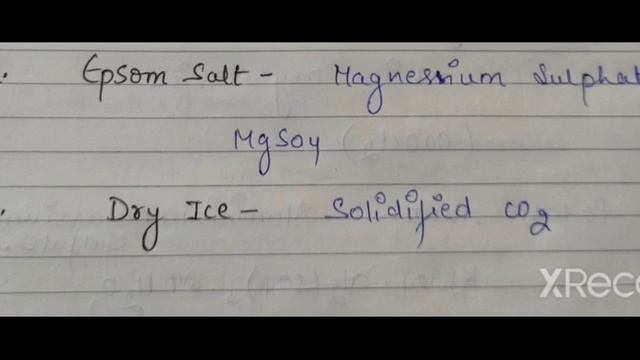 Epsom Salt - Magnesium Sulphat
MgSO4
Dry Ice - Solidified CO2
XRec